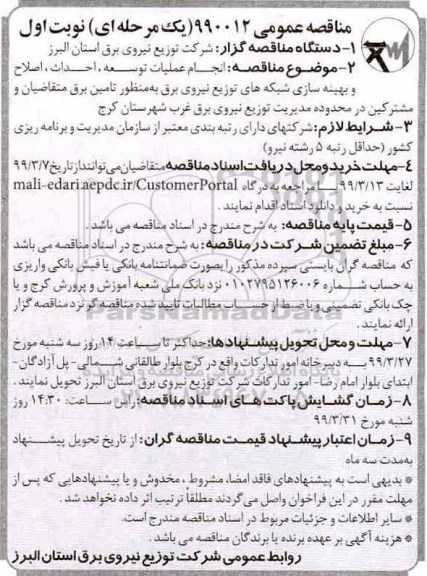 مناقصه عمومی ۹۹۰۰۱۲(یک مرحله ای) نوبت اول
۱-دستگاه مناقصه گزار: شرکت توزیع نیروی برق استان البرز
۲-موضوع مناقصه: انجام عملیات توسعه ، احداث ، اصلاح
و بهینه سازی شبکه های توزیع نیروی برق به‌منظور تامین برق متقاضیان و
مشترکین در محدوده مدیریت توزیع نیروی برق غرب شهرستان کرج
۳-شرایط لازم: شرکتهای دارای رتبه بندی معتبر از سازمان مدیریت و برنامه ریزی
کشور (حداقل رتبه ۵ رشته نیرو)
۴-مهلت خرید و محل دریافت اسناد مناقصه متقاضیان می‌توانند از تاریخ ۹۹/۳/۷
لغایت ۹۹/۳/۱۳ با مراجعه به درگاه mali-edari.aepdc.ir/CustomerPortal
نسبت به خرید و دانلود اسناد اقدام نمایند .
۵-قیمت پایه مناقصه: به شرح مندرج در اسناد مناقصه می باشد .
۶-مبلغ تضمین شرکت در مناقصه: به شرح مندرج در اسناد مناقصه می باشد
که مناقصه گران بایستی سپرده مذکور را بصورت ضمانتنامه بانکی یا فیش بانکی واریزی
به حساب شماره ۰۱۰۲۷۹۵۱۲۶۰۰۶ نزد بانک ملی شعبه آموزش و پرورش کرج و یا
چک بانکی تضمینی و یا ضبط از حساب مطالبات تایید شده مناقصه گر نزد مناقصه گزار
ارائه نمایند .
۷-مهلت و محل تحویل پیشنهادها: حداکثر تا ساعت ۱۴ روز سه شنبه مورخ
۹۹/۳/۲۷ به دبیرخانه امور تدارکات واقع در کرج بلوار طالقانی شمالی- پل آزادگان-
ابتدای بلوار امام رضا- امور تدارکات شرکت توزیع نیروی برق استان البرز تحویل نمایند .
۸-زمان گشایش پاکت های اسناد مناقصه: راس ساعت: ۱۴:۳۰ روز
شنبه مورخ ۹۹/۳/۳۱
۹-زمان اعتبار پیشنهاد قیمت مناقصه گران: از تاریخ تحویل پیشنهاد
به‌مدت سه ماه
* بدیهی است به پیشنهادهای فاقد امضا، مشروط ، مخدوش و یا پیشنهادهایی که پس از
مهلت مقرر در این فراخوان واصل می گردند مطلقاً ترتیب اثر داده نخواهد شد .
* سایر اطلاعات و جزئیات مربوط در اسناد مناقصه مندرج است.
* هزینه آگهی بر عهده برنده یا برندگان مناقصه می باشد .
روابط عمومی شرکت توزیع نیروی برق استان البرز